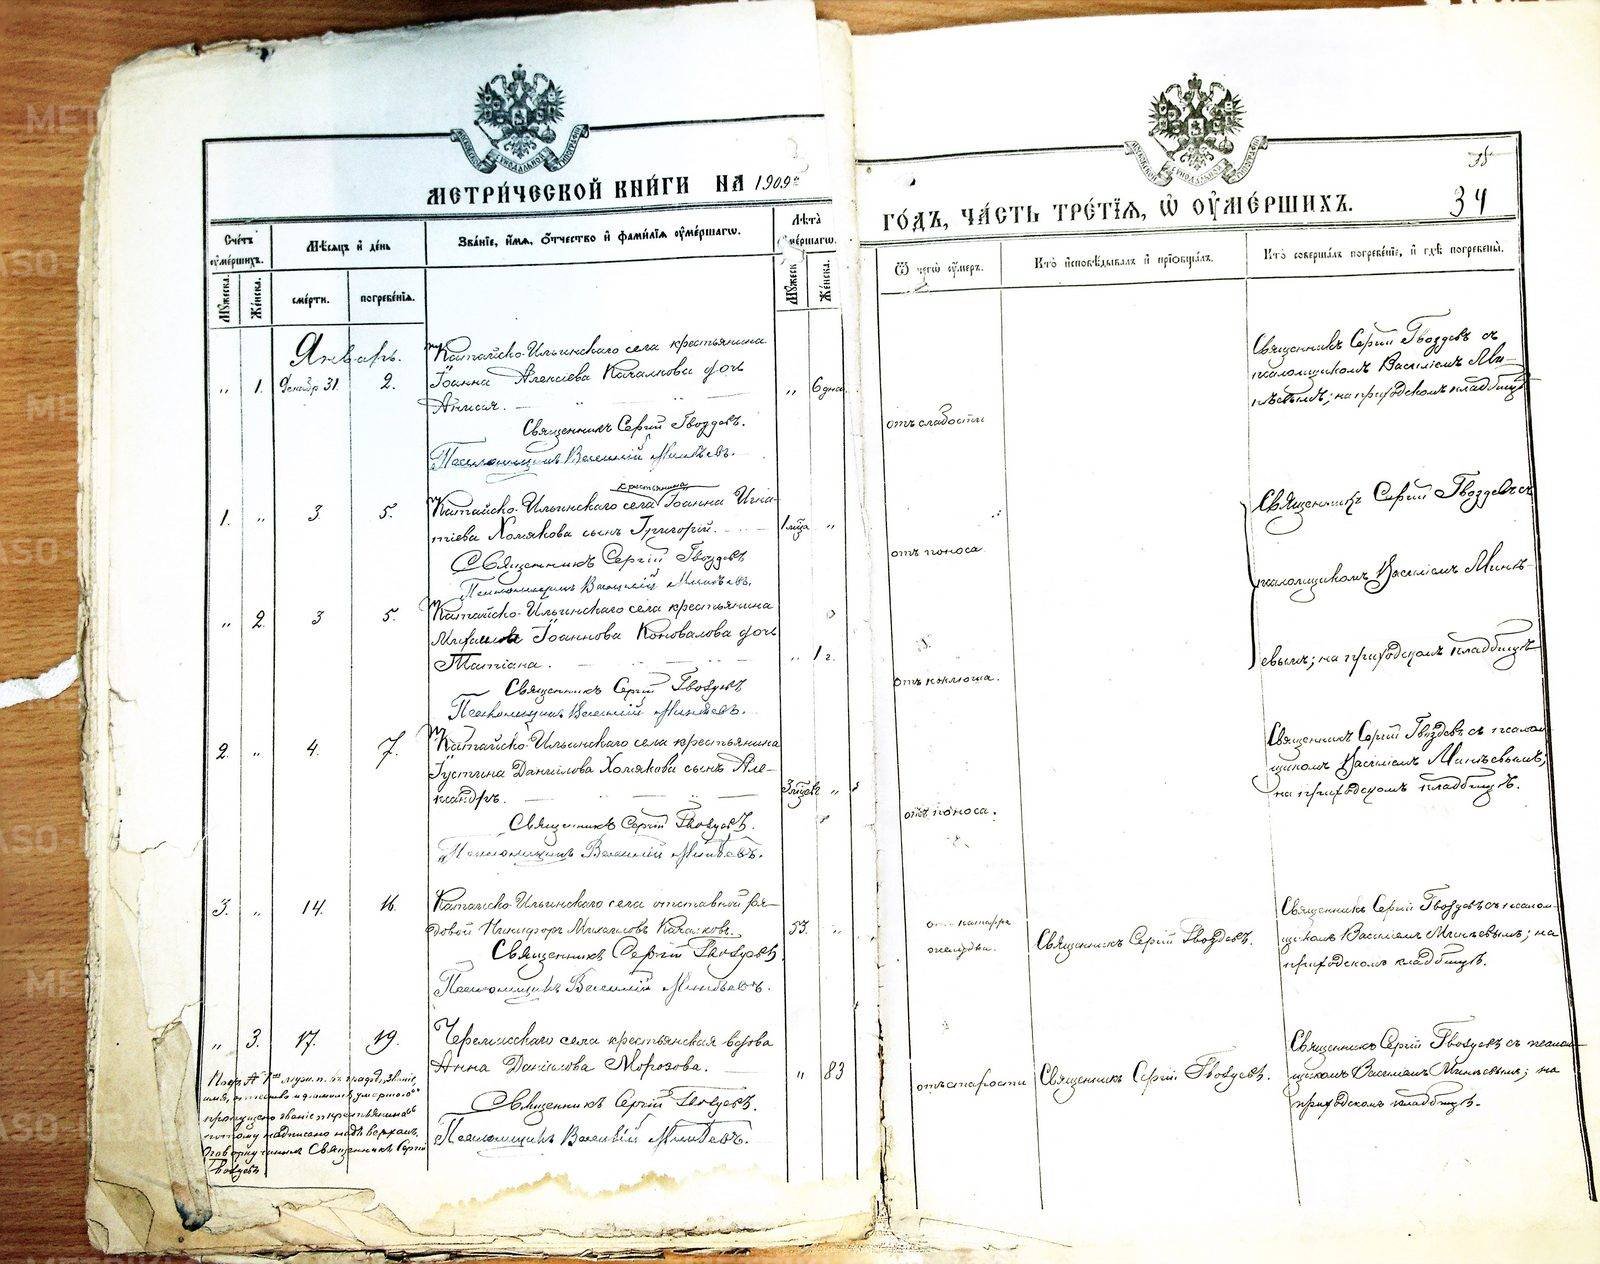 МЕТРИ́ЧЕСКОЙ КНИ́ГИ НА 1909 г
ГО́ДЪ, ЧА́СТЬ ТРЕ́ТІѦ, Ѡ҆ ОУ҆МЕ́РШИХЪ.
34
Сче́тъ оу҆ме́ршихъ.
Мѣ́сѧцъ и҆ де́нь
Зва́нїе, и҆́мѧ, ѻ҆́тчество и҆ фами́лїѧ оу҆ме́ршагѡ.
Лѣ́та оу҆ме́ршагѡ.
Ѿ чегѡ̀ оу҆́меръ.
Кто̀ и҆сповѣ́дывалъ и҆ прїѡбща́лъ.
Кто̀ соверша́лъ погребе́нїе, и҆ гдѣ̀ погребены̀.
Мꙋ́жеска.
Же́нска.
сме́рти.
погребе́нїѧ.
Мꙋ́жеск
Же́нска.
Январь.
„ 1. Декабр 31 2.
Катайско-Ильинскаго села крестьянина
Іоанна Алексіева Качалкова дочь
Анисія.
Священникъ Сергій Гвоздевъ.
Псаломщикъ Василій Минѣевъ.
„ 6 дне
отъ слабости
Священникъ Сергій Гвоздевъ съ
псаломщикомъ Василіемъ Ми-
нѣевымъ; на приходскомъ кладбищѣ
1. „ 3. 5.
крестьянина
Катайско-Ильинскаго села Іоанна Игна-
тіева Хомякова сынъ Григорій.
Священникъ Сергій Гвоздевъ
Псаломщикъ Василій Минѣевъ.
1 мца „
отъ поноса
Священникъ Сергій Гвоздевъ съ
псаломщикомъ Василіемъ Минѣ-
евымъ; на приходскомъ кладбищѣ
„ 2. 3 5.
Катайско-Ильинскаго села крестьянина
Михаила Іоаннова Коновалова дочь
Татіана.
Священникъ Сергій Гвоздевъ
Псаломщикъ Василій Минѣевъ.
„ 1 г.
отъ коклюша.
2. „ 4. 7.
Катайско-Ильинскаго села крестьянина
Іустина Даніилова Хомякова сынъ Але-
ксандръ.
Священникъ Сергій Гвоздевъ.
Псаломщикъ Василій Минѣевъ.
отъ поноса.
Священникъ Сергій Гвоздевъ съ псалом-
щикомъ Василіемъ Минѣевымъ,
на приходскомъ кладбищѣ.
3. „ 14. 16.
Катайско-Ильинскаго села отставной ря-
довой Никифоръ Михаиловъ Качалковъ.
Священникъ Сергій Гвоздевъ
Псаломщикъ Василій Минѣевъ.
53. „
отъ катарра
желудка.
Священникъ Сергій Гвоздевъ.
Священникъ Сергій Гвоздевъ съ псалом-
щикомъ Василіемъ Минѣевымъ; на
приходскомъ кладбищѣ.
„ 3. 17. 19.
Черемисскаго села крестьянская вдова
Анна Даніилова Морозова.
Священникъ Сергій Гвоздевъ.
Псаломщикъ Василій Минѣевъ.
„ 83
отъ старости
Священникъ Сергій Гвоздевъ.
Священникъ Сергій Гвоздевъ съ псалом-
щикомъ Василіемъ Минѣевымъ; на
приходскомъ кладбищѣ.
Подъ № 1 муж. п. въ графѣ „званіе,
имя, отчество и фамилія умершаго“
пропущено званіе „крестьянина“,
потому надписано надъ верхомъ.
оговорку чинилъ Священникъ Сергій
Гвоздевъ.